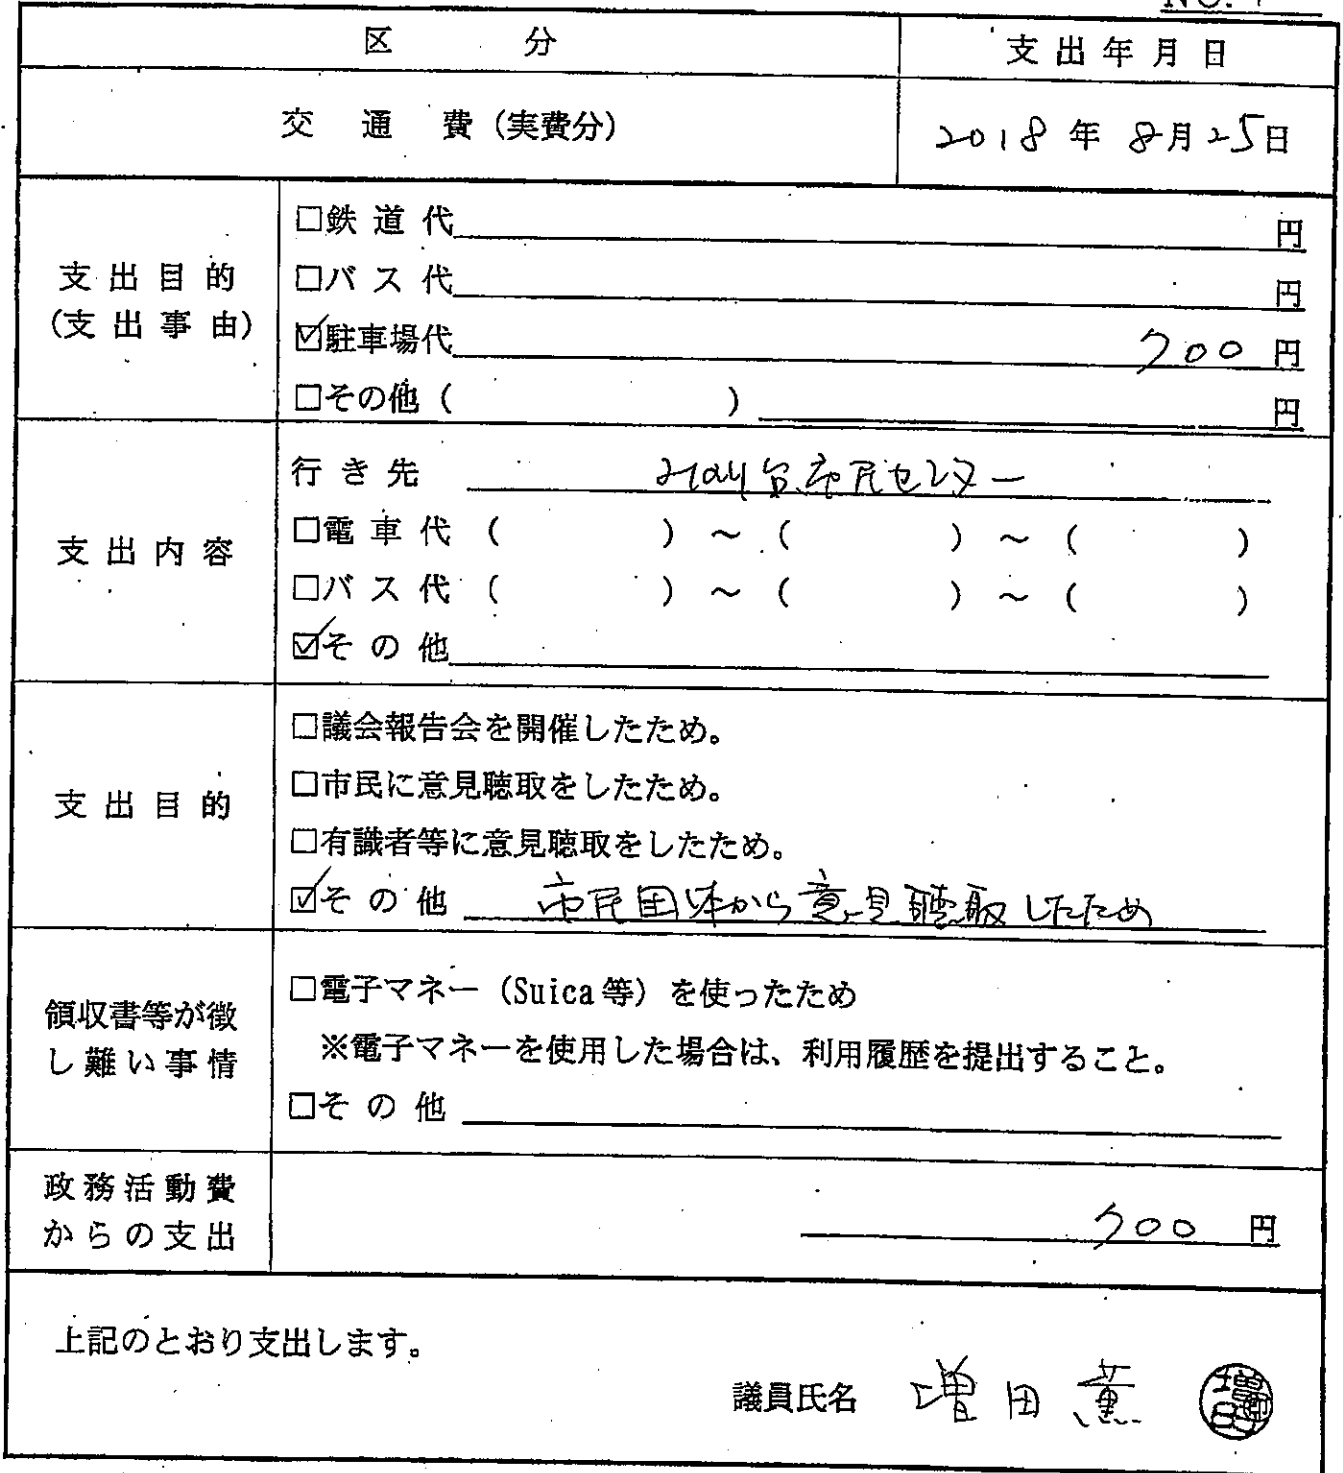 区 分 支出年月日
交 通 費（実費分） 2018年 8月25日
支出目的
（支出事由）
□鉄 道 代 円
□バ ス 代 円
☑駐車場代 700 円
□その他（ ） 円
支出内容
行き先 台市民センター
□電 車 代（ ）～（ ）～（ ）
□バ ス 代（ ）～（ ）～（ ）
☑そ の 他
支出目的
□議会報告会を開催したため。
□市民に意見聴取をしたため。
□有識者等に意見聴取をしたため。
☑そ の 他 市民団体から意見聴取したため
領収書等が徴
し難い事情
□電子マネー（Suica等）を使ったため
※電子マネーを使用した場合は、利用履歴を提出すること。
□そ の 他
政務活動費
からの支出
700 円
上記のとおり支出します。
議員氏名 増田 薫